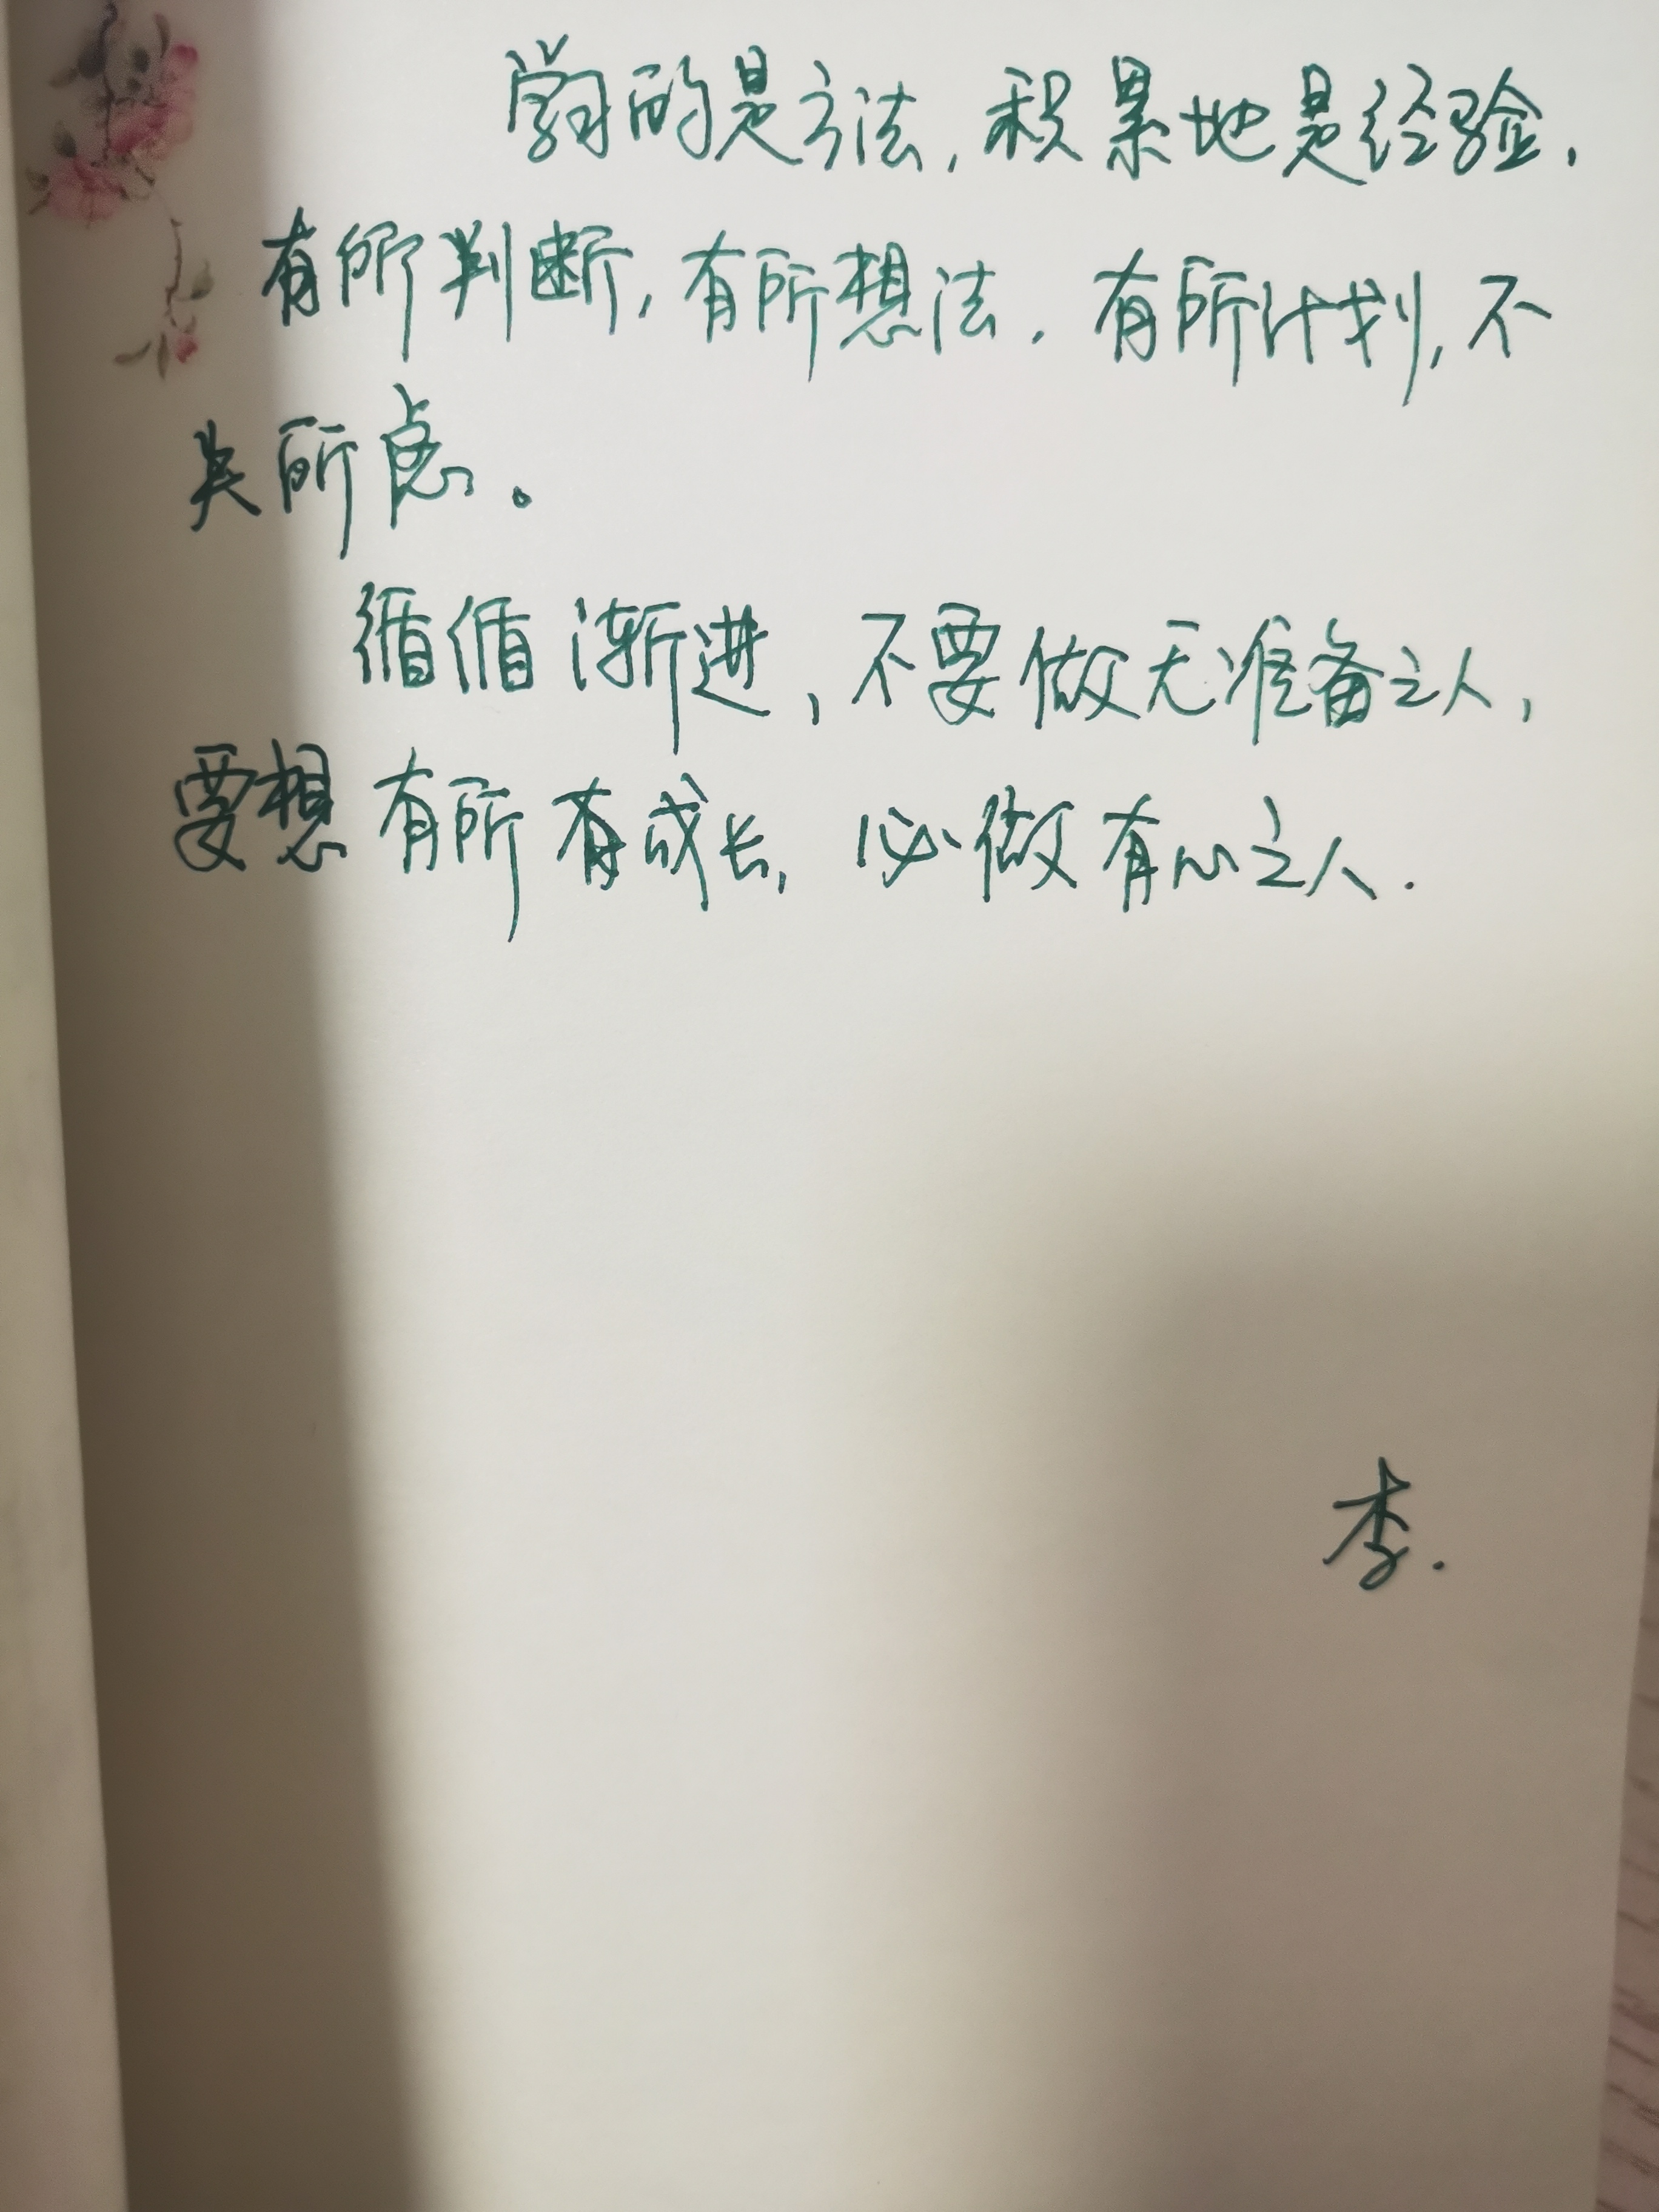 学习的是方法,积累地是经验,
有所判断,有所想法,有所计划,不
失所虑。
循循渐进,不要做无准备之人,
要想有所有成长,必做有心之人.
李.